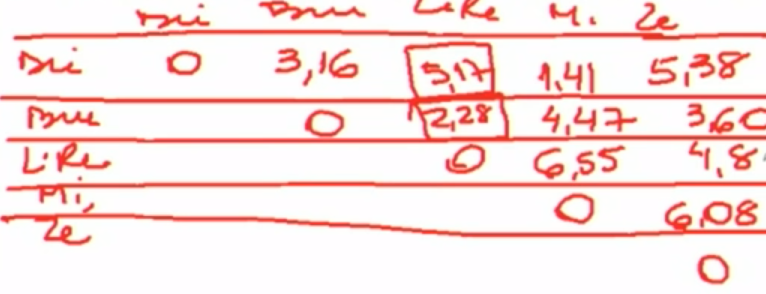 Bri Bru LiRe Mi. Ze
Bri 0 3,16 5,17 1,41 5,38
Bru 0 2,28 4,47 3,60
LiRe 0 6,55 4,8
Mi, 0 6,08
Ze
0